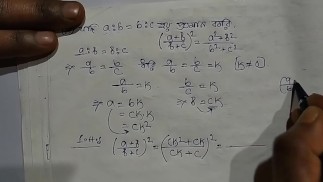 a:b = b:c হয়
(a+b/b+c)² = a²+b²/b²+c²
a:b = b:c
⇒ a/b = b/c a/b = b/c = K [K≠0]
a/b = K b/c = K
⇒ a = bK ⇒ b = CK
= CK.K
= CK²
L.H.S (a+b/b+c)² = (CK²+CK/CK+C)² =